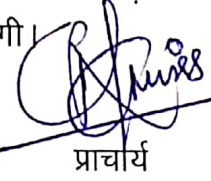 गी।
प्राचार्य